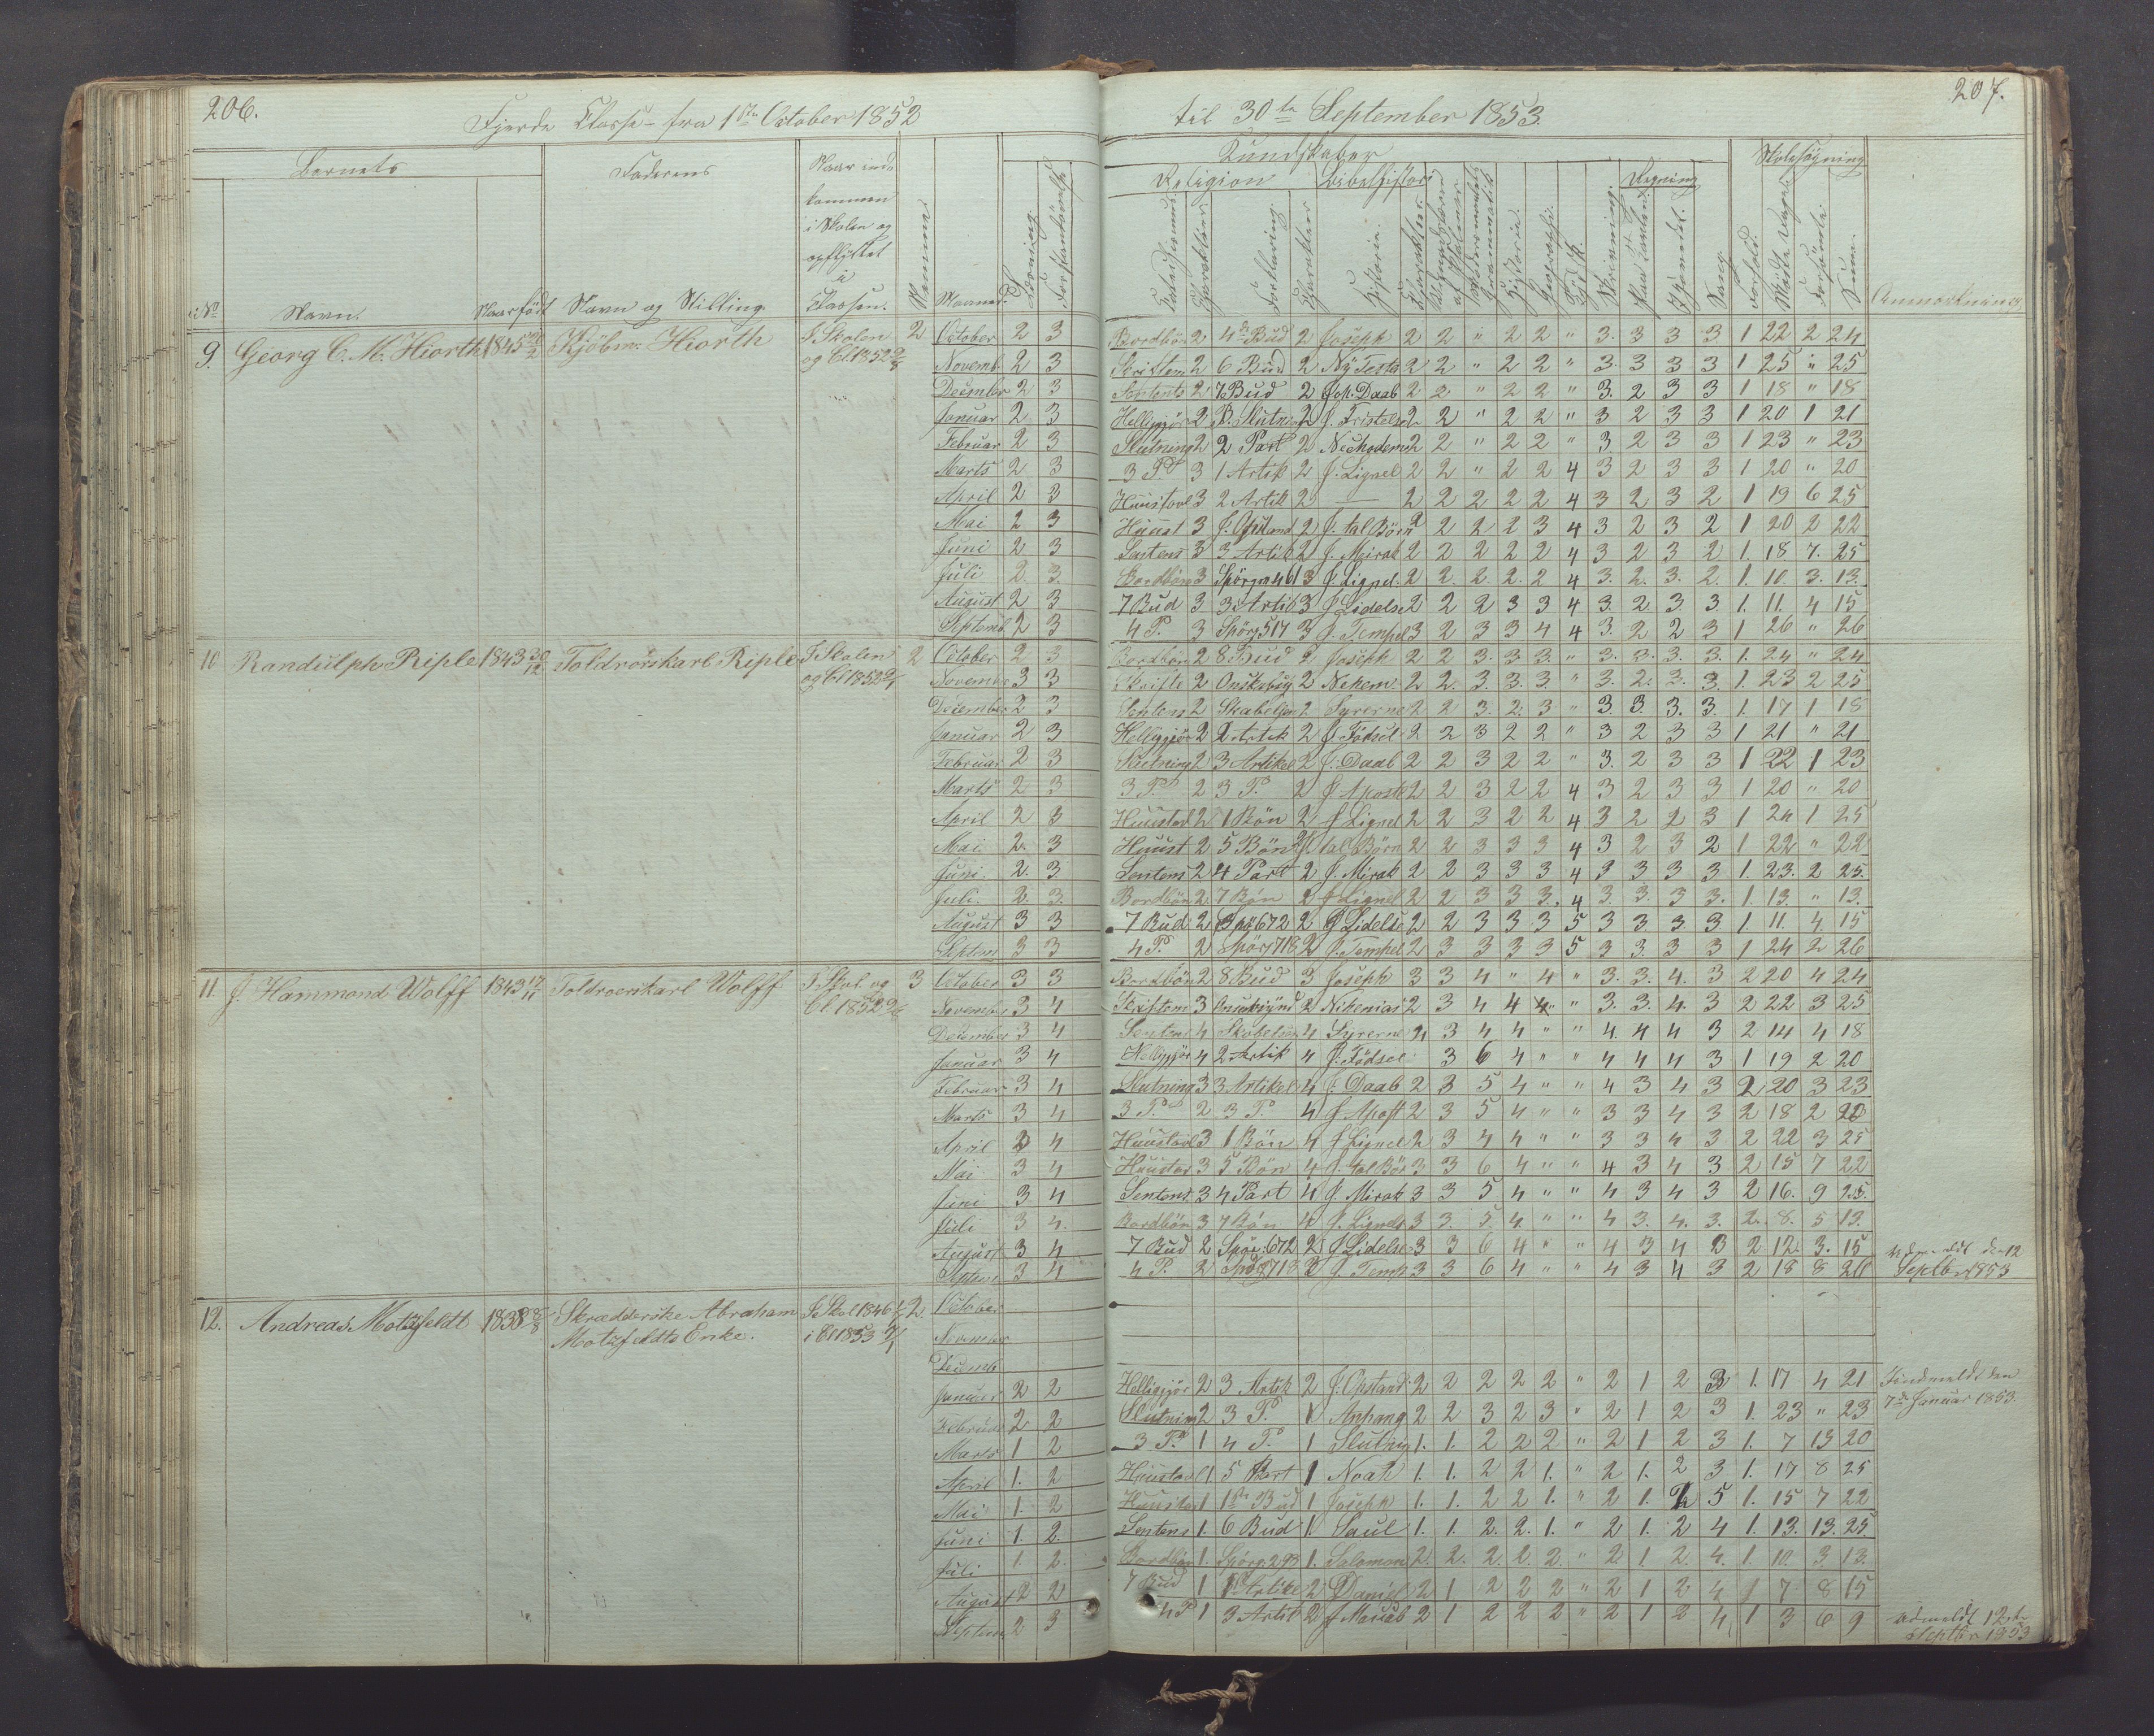 206.
Fjerde Classe fra 1ste October 1852
til 30te September 1853.
207.
Barnets
Faderens
Naar ind-
kommen
i Skolen og
opflyttet
i
Classen.
Maaned.
Kundskaber
Religion
Bibelhistorie
Regning
Skolesøgning
No
Navn.
Naar født
Navn og Stilling
Anmærkning
9. Georg C. M. Hiorth 1845 Kjöbm: Hiorth I Skolen 2 October 2 3 Bordbön 2 4de Bud 2 Joseph 2 2 " 2 2 " 3. 3 3 3 1 22 2 24
og Cl 1852 Novemb. 2 3 Skriftem 2 6 Bud 2 Ny Testa 2 2 " 2 2 " 3. 3 3 3 1 25 " 25
December 2 3 Sentents 2 7 Bud 2 Joh. Daab 2 2 " 2 2 " 3. 2 3 3 1 18 " 18
Januar 2 3 Helliggjör 2 B. Slutn 2 J. Fristelse 2 2 " 2 2 " 3 2 3 3 1 20 1 21
Februar 2 3 Slutning 2 2 Part 2 Neckodem 2 2 " 2 2 " 3 2 3 3 1 23 " 23
Marts 2 3 3 P. 3 1 Artik 2 J. Lignel 2 2 " 2 2 4 3 2 3 3 1 20 " 20
April 2 3 Huustavl 3 2 Artik 2 — 2 2 2 2 2 4 3 2 3 2 1 19 6 25
Mai 2 3 Huust 3 J. Opstand 2 J. tal Börn 2 2 2 2 3 4 3 2 3 2 1 20 2 22
Juni 2 3 Sentens 3 3 Artik 2 J. Mirak 2 2 2 2 2 4 3 2 3 2 1. 18 7. 25
Juli 2. 3. Bordbön 3 Spörgm 461 3 J. Lignel. 2 2. 2. 2. 2 4 3. 2. 3. 2. 1. 10. 3. 13.
August 2 3 7 Bud 3 3 Artik 3 J. Lidelse 2 2 2 3 3 4 3. 2. 3. 3. 1. 11. 4 15
Septemb. 2 3 4 P. 3 Spörg 517 3 J. Tempel 3 2 3 3 4 4 3. 2 2 3 1 26 " 26
10 Randulph Riple 1843 Toldroerskarl Riple I Skolen 2 October 2 3 Bordbön 2 8 Bud 2 Joseph 2 2 3. 3. 3. " 3. 3. 3. 3. 1. 24 " 24
og Cl 1852 November 3 3 Skrifte 2 Onskebig 2 Nehem. 2 2. 3. 3. 3. " 3. 2. 3. 3. 1. 23 2 25
December 2 3 Sentens 2 Skabelsen 2 Syrerne 2 2 3. 2. 3 " 3. 3. 3. 3. 1. 17 1 18
Januar 2 3 Helliggjör 2 2 Artik 2 J. Födsel 2 2 3 2 2 " 3 2 3 3 1 21 " 21
Februar 2 3 Slutning 2 3 Artikel 2 J: Daab 2 2 3 2 2 " 3. 2 3 3 1 22 1 23
Marts 2 3 3 P. 2 3 P. 2 J Apostl 2 2 3 2 2 4 3 2 3 3 1 20 " 20
April 2 3 Huustavl 2 1 Bön 2 J Lignel 2 2 3 2 2 4 3 2 2 3 1 24 1 25
Mai 2. 3 Huust 2 5 Bön 2 J tal Börn 2 2 3 3 3 4 3 2 3 2 1 22 " 22
Juni. 2. 3. Sentens 2 4 Part 2 J. Mirak 2 2 3 3 3 4 3 3 3 3 1. 23. 2 25.
Juli. 2. 3. Bordbön 2 7 Bön 2 J Lignel 2 2 3 3 3. 4 3. 3. 3 3. 1. 13. " 13.
August 3 3 7 Bud 2 Spö 672 2 J Lidels 2 2 3 3 3 5 3 3. 3. 3. 1. 11. 4. 15
Septem 3 3 4 P. 2 Spörg 718 2 J. Tempel 2 3 3 3 3 5 3 3. 3 3 1 24 2 26
11. J. Hammond Wolff 1843 Toldroerskarl Wolff I Skol. og 3 October 3 3 Bordbön 2 8 Bud 3 Joseph 3 3 4 " 4 " 3. 3. 4. 3 2 20 4 24
Cl 1852 November 3 4 Skriftem 3 2 Nehemias 2 3 4 4 " 3. 3. 4. 3 2 22 3 25
December 3 4 Sentens 4 Skabelsen 4 Syrerne 4 3 4 4 " " 4. 4 4 3 2 14 4 18
Januar 3 4 Helliggjör 4 2 Artik 4 J. Födsel 3 6 4 " " 4 4 4 3 1 19 2 20
Februar 3 4 Slutning 3 3 Artikel 4 J: Daab 2 3 5 4 " " 4 3 4 3 2 20 3 23
Marts 3 4 3 P. 2 3 P. 4 J Apost 2 3 5 4 " " 3 3 4 3 2 18 2 20
April 3 4 Huustavl 3 1 Bön 4 J Lignel 2 3 4 4 " " 3 3 4 3 2 22 3 25
Mai 3 4 Huustav 3 5 Bön 4 J. tal Bör 3 3 6 4 " " 4 3 4 3 2 15 7 22
Juni 3 4 Sentens 3 4 Part 4 J. Mirak 3 3 5 4 " " 4 3 4 3 2 16. 9 25.
Juli 3 4. Bordbön 3 7 Bön 4 J. Lignels 3 3. 5 4. " " 4 3. 4. 3. 2. 8. 5 13.
August 3 4 7 Bud 2 Spör: 672 2 J Lidelse 3 3 6 4 " " 4 3 4 3 2 12. 3. 15 Udmeldt den 12
Septem 3 4 4 P. 2 Spörg 718 3 J. Temp 3 3 6 4 " " 4 3 4 3 2 18 8 26 Septbr 1853
12. Andreas Motzfeldt 1838 Skrædderske Abraham I Skol 1846 2. October
Motzfeldts Enke. i Cl 1853 November
Decemb
Januar 2 2 Helliggjör 2 3 Artik 2 J: Opstand 2 2 2 2 2 " 2 1 2 3 1. 17 4 21 Indmeldt den
7de Januar 1853.
Februar 2 2 Slutning 2 3 P. 1 Anhang 2 2 3 2 3 " 2 1 2 3 1. 23 " 23
Marts 1 2 3 P. 1 4 P. 1 Slutnig 1. 1. 2 2 2 " 2 1 2 3 1. 7 13 20
April 1. 2 Huustavl 1 5 Part 1 Noah 1. 1. 2 2 1. " 2 1. 2 3 1. 17 8 25
Mai 1. 2 Huustav 1 1ste Bud 1 Joseph 1. 1. 2 2 1. " 2 1. 2 5 1. 15 7 22
Juni 1. 2. Sentens 1. 6 Bud 1. Saul 1. 1. 2. 2. 1. " 2 1. 2 4 1. 13. 13. 25.
Juli 1. 2. Bordbön 1. Spörg. 293 1. Salomon 2. 2. 2. 2. 2. " 2 1 2. 4. 1. 10. 3. 13.
August 2 2 7 Bud 1 1 Artikel 2 Daniel 2 1 2 2 2 " 2 1 2 4 1 7 8 15
Septem 2 3 4 P 1 3 Artik 2 2 1 2 2 2 " 2 1 2 4 1 3 6 9 Udmeldt 12te
Septbr 1853